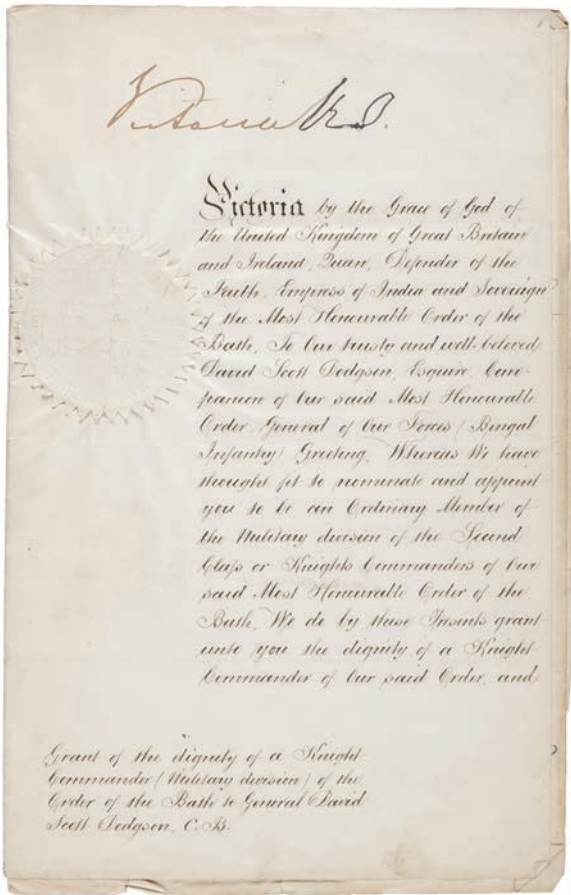 Victoria R.I.
Victoria by the Grace of God of
the United Kingdom of Great Britain
and Ireland, Queen, Defender of the
Faith, Empress of India and Sovereign
of the Most Honourable Order of the
Bath, To Our trusty and well-beloved
David Scott Dodgson, Esquire, Com-
panion of Our said Most Honourable
Order, General of Our Forces (Bengal
Infantry) Greeting, Whereas We have
thought fit to nominate and appoint
you to be an Ordinary Member of
the Military division of the Second
Class or Knights Commanders of Our
said Most Honourable Order of the
Bath, We do by these Presents grant
unto you the dignity of a Knight
Commander of Our said Order, and
Grant of the dignity of a Knight
Commander (Military division) of the
Order of the Bath to General David
Scott Dodgson, C.B.